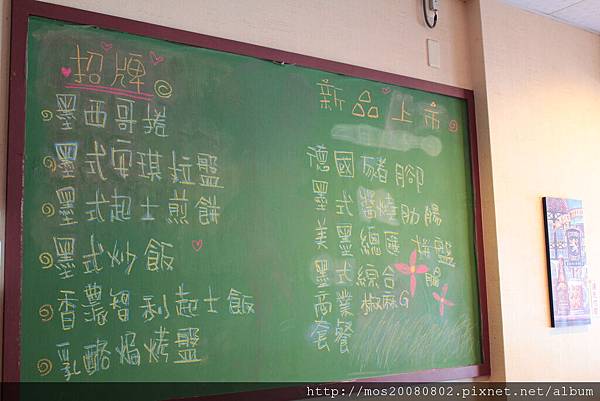 招牌
墨西哥捲
墨式安琪拉盤
墨式起士煎餅
墨式炒飯
香濃智利起士飯
乳酪焗烤盤
新品上市
德國豬腳
墨式醬燒肋腸
美墨總匯拼盤
墨式綜合腸
商業椒麻G
套餐
http://mos20080802.pixnet.net/album